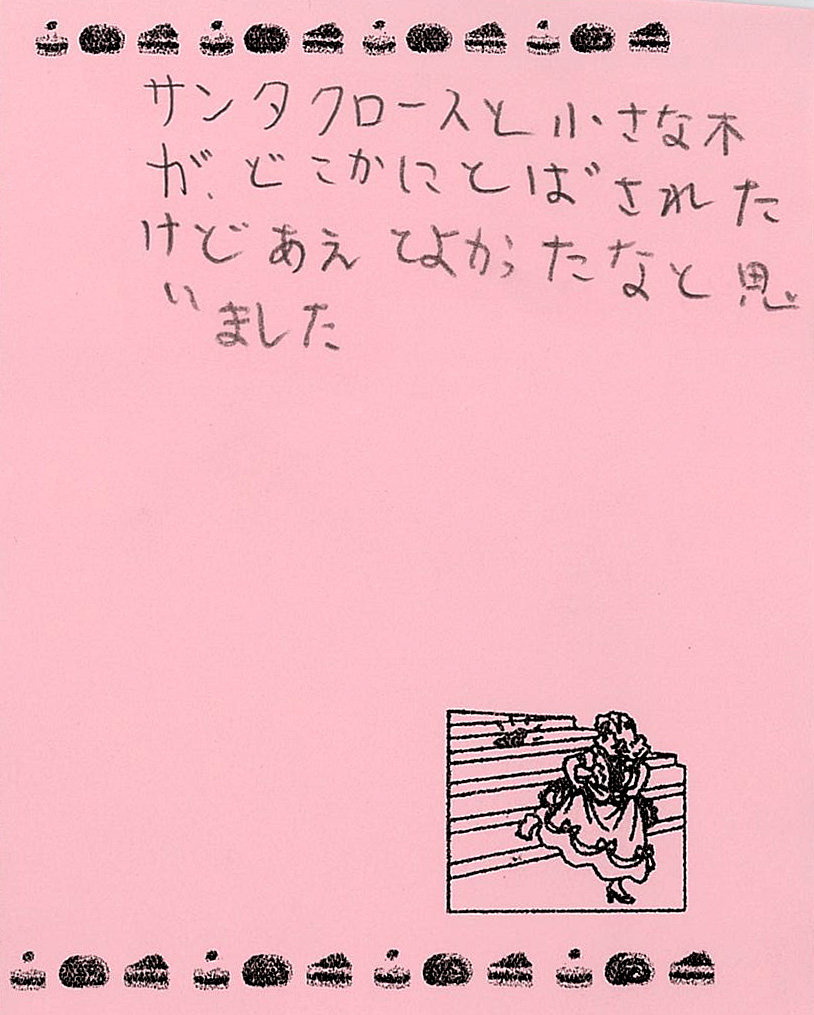 サンタクロースと小さな木
が、どこかにとばされた
けどあえてよかったなと思
いました